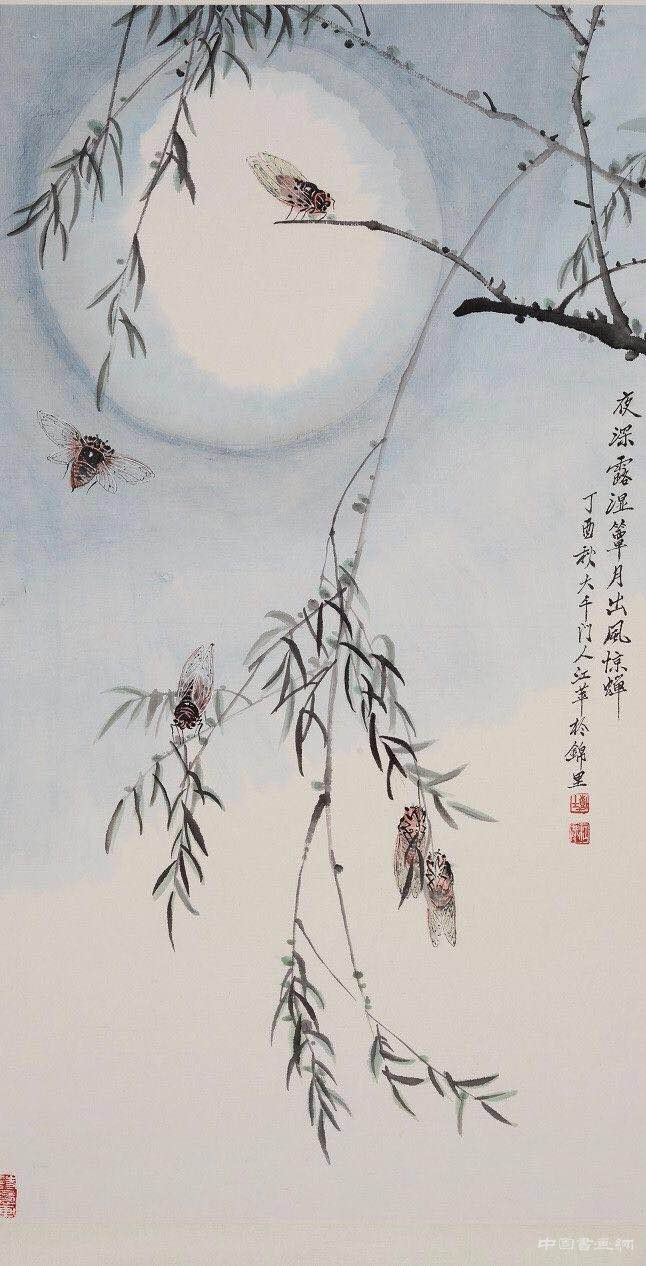 夜深露湿簟月出風惊蟬
丁酉秋大千门人江苹於錦里
中国書画网